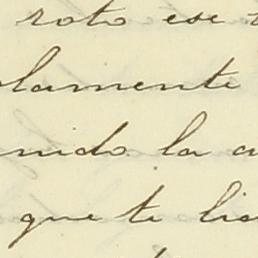 roto ese t
olamente
nido la a
que te lia